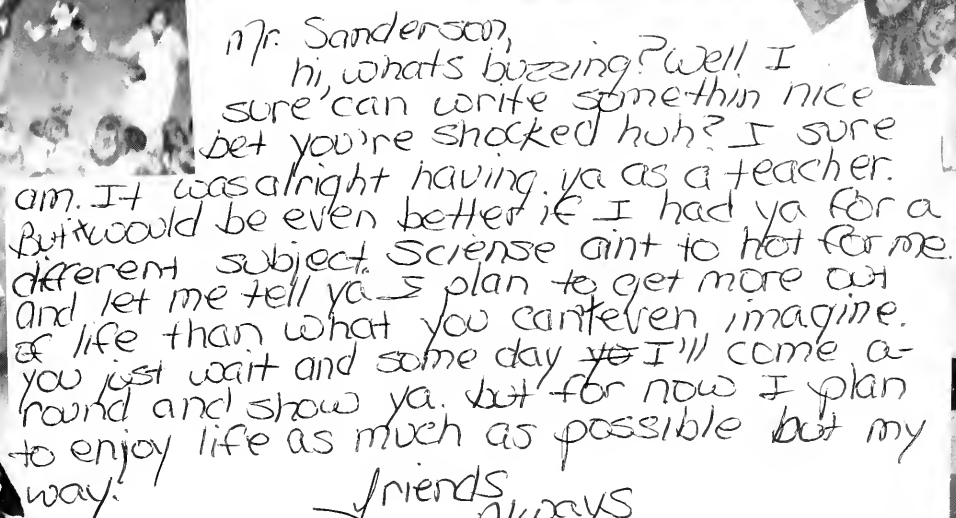 Mr. Sanderson,
hi, whats buzzing? Well I
sure can write somethin nice
bet you're shocked huh? I sure
am. It was alright having ya as a teacher.
But it would be even better if I had ya for a
different subject. Sciense aint to hot for me.
And let me tell ya I plan to get more out
of life than what you can't even imagine.
you just wait and some day yo I'll come a-
round and show ya. but for now I plan
to enjoy life as much as possible but my
way!
friends
always